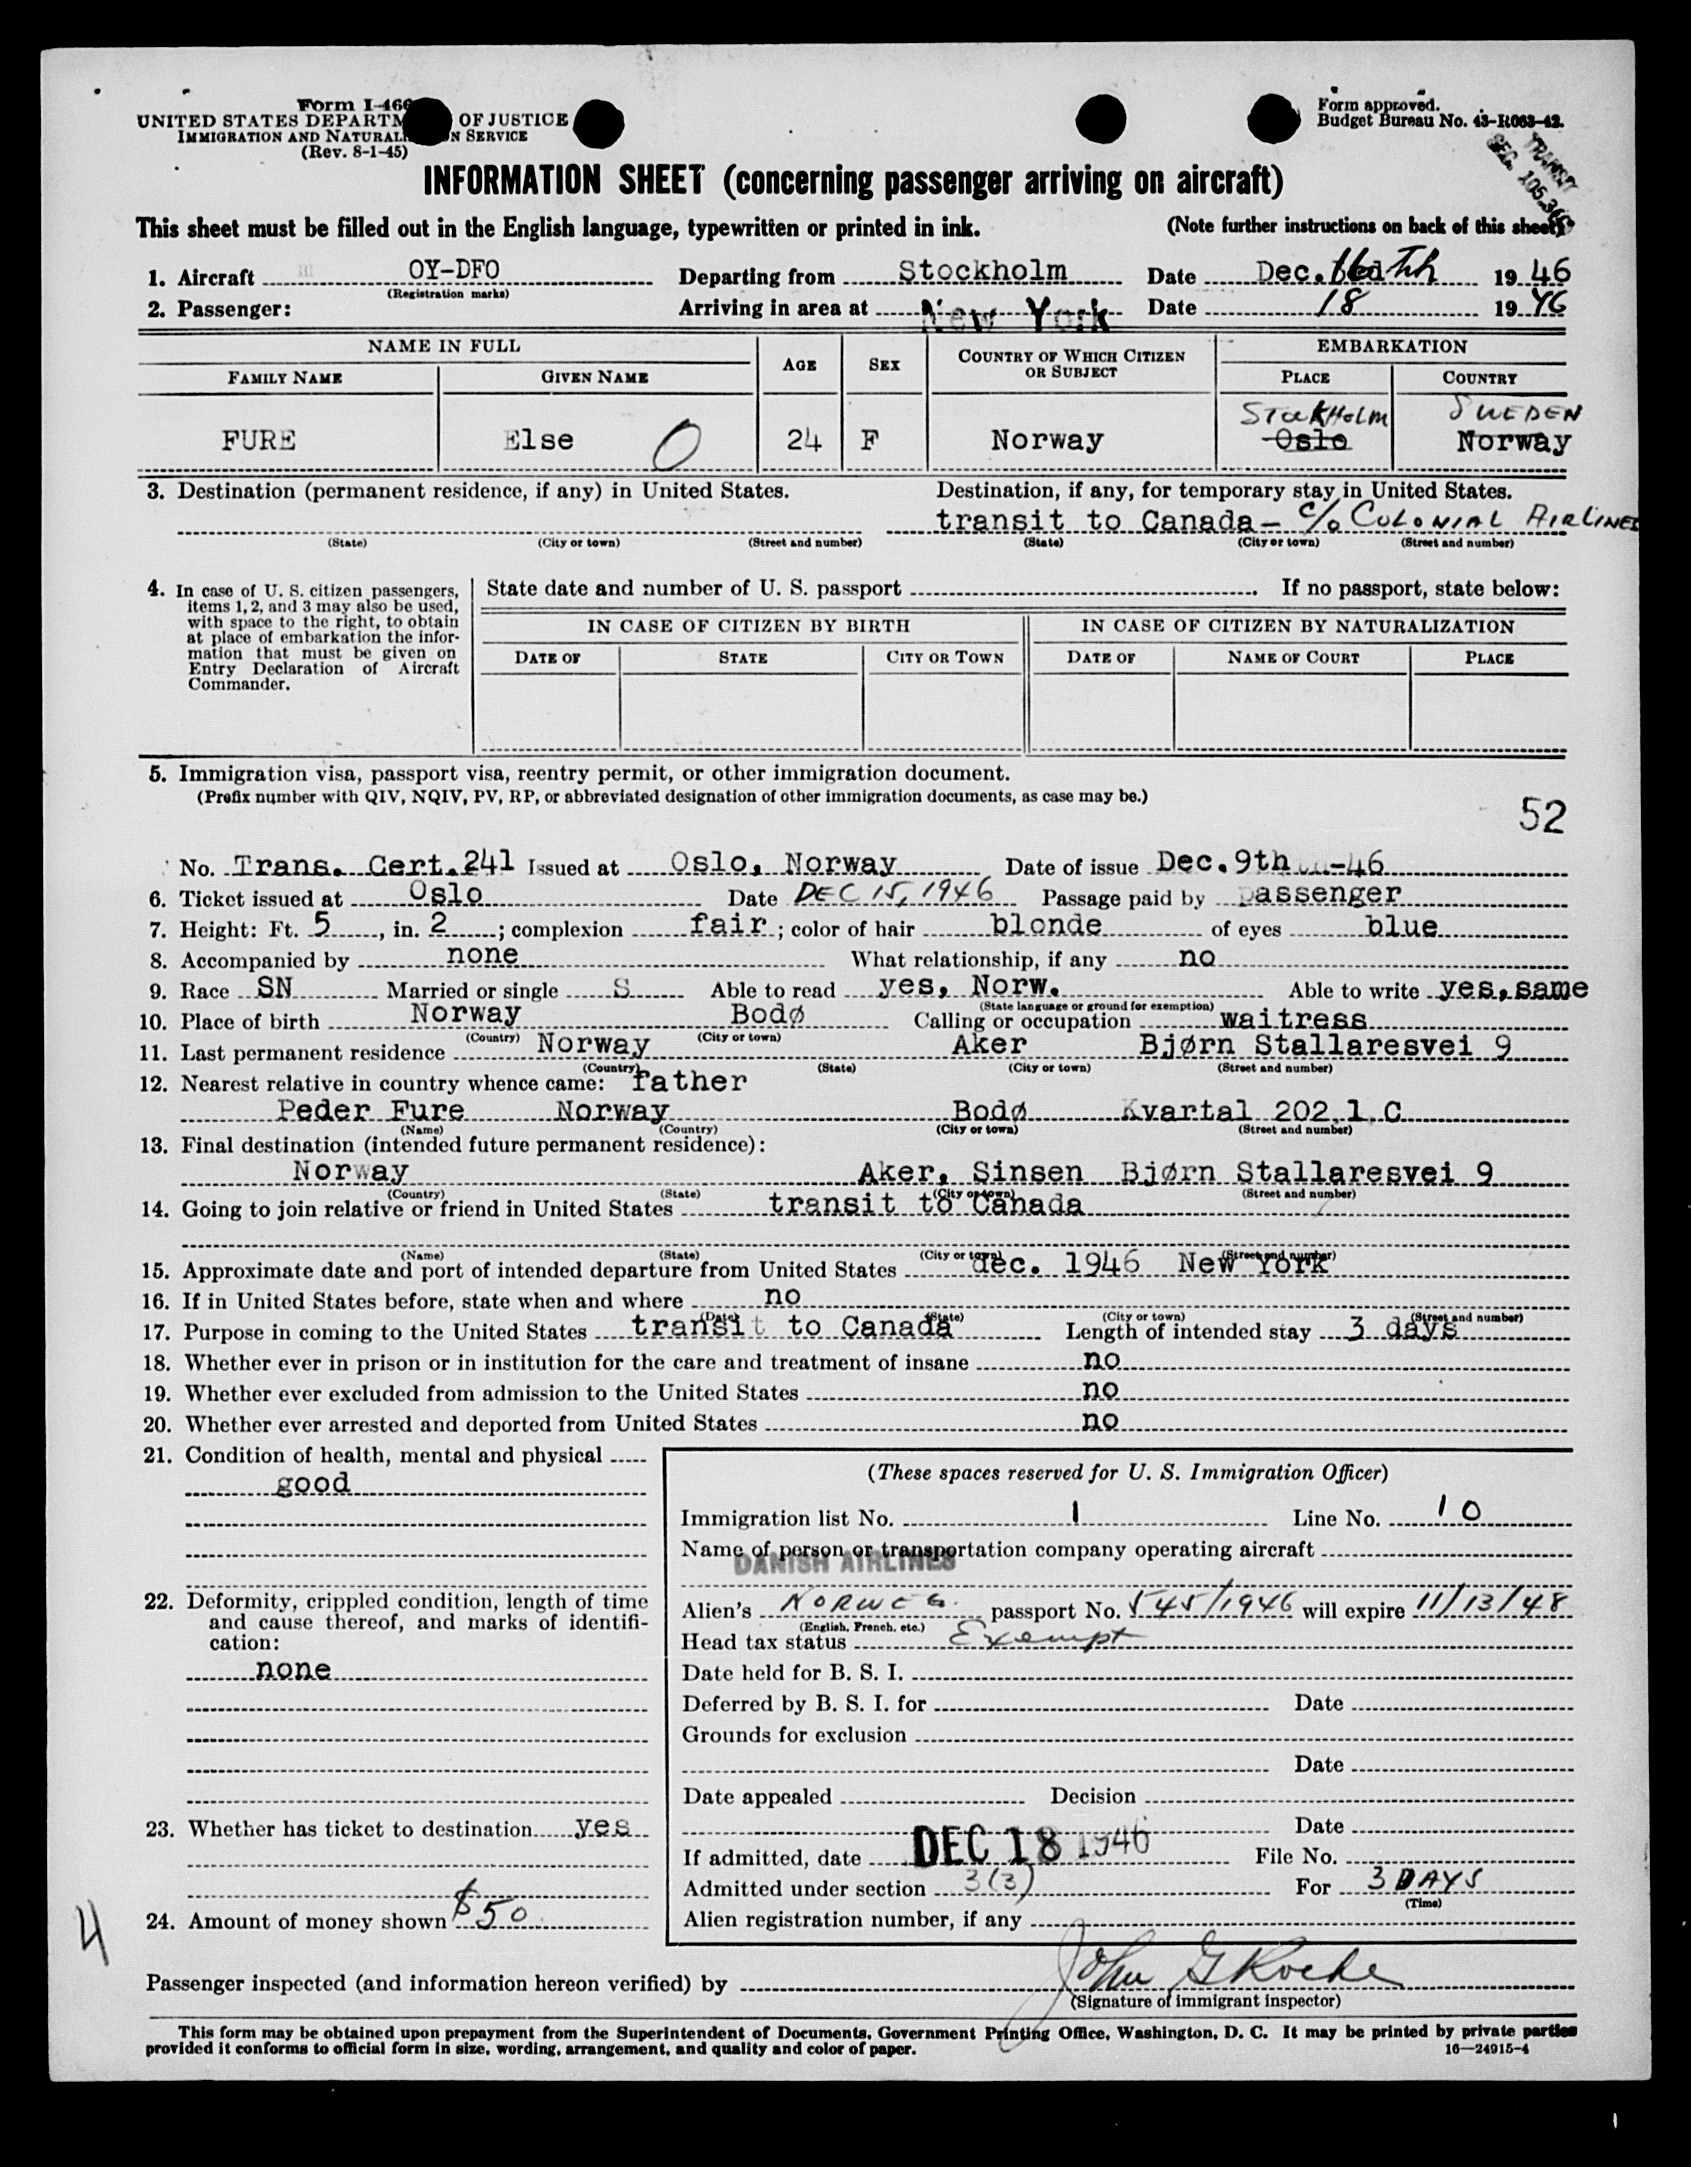 Form I-466
UNITED STATES DEPARTM OF JUSTICE
IMMIGRATION AND NATURAL N SERVICE
(Rev. 8-1-45)
Form approved.
Budget Bureau No. 43-R063-42.
TRANSIT
SEC. 105.3(c)
INFORMATION SHEET (concerning passenger arriving on aircraft)
This sheet must be filled out in the English language, typewritten or printed in ink. (Note further instructions on back of this sheet)
1. Aircraft OY-DFO Departing from Stockholm Date Dec. 16th 19 46
(Registration marks)
2. Passenger: Arriving in area at New York Date 18 19 46
NAME IN FULL AGE SEX COUNTRY OF WHICH CITIZEN OR SUBJECT EMBARKATION
FAMILY NAME GIVEN NAME PLACE COUNTRY
STOCKHOLM SWEDEN
FURE Else O 24 F Norway Oslo Norway
3. Destination (permanent residence, if any) in United States. Destination, if any, for temporary stay in United States.
transit to Canada - c/o COLONIAL AIRLINES
(State) (City or town) (Street and number) (State) (City or town) (Street and number)
4. In case of U. S. citizen passengers, items 1, 2, and 3 may also be used, with space to the right, to obtain at place of embarkation the information that must be given on Entry Declaration of Aircraft Commander.
State date and number of U. S. passport . If no passport, state below:
IN CASE OF CITIZEN BY BIRTH IN CASE OF CITIZEN BY NATURALIZATION
DATE OF STATE CITY OR TOWN DATE OF NAME OF COURT PLACE
5. Immigration visa, passport visa, reentry permit, or other immigration document.
(Prefix number with QIV, NQIV, PV, RP, or abbreviated designation of other immigration documents, as case may be.)
52
No. Trans. Cert. 241 Issued at Oslo, Norway Date of issue Dec. 9th -46
6. Ticket issued at Oslo Date DEC 15, 1946 Passage paid by passenger
7. Height: Ft. 5, in. 2; complexion fair; color of hair blonde of eyes blue
8. Accompanied by none What relationship, if any no
9. Race SN Married or single S Able to read yes, Norw. Able to write yes, same
(State language or ground for exemption)
10. Place of birth Norway Bodø Calling or occupation waitress
(Country) (City or town)
11. Last permanent residence Norway Aker Bjørn Stallaresvei 9
(Country) (State) (City or town) (Street and number)
12. Nearest relative in country whence came: father
Peder Fure Norway Bodø Kvartal 202,1.C
(Name) (Country) (City or town) (Street and number)
13. Final destination (intended future permanent residence):
Norway Aker, Sinsen Bjørn Stallaresvei 9
(Country) (State) (City or town) (Street and number)
14. Going to join relative or friend in United States transit to Canada
(Name) (State) (City or town) (Street and number)
15. Approximate date and port of intended departure from United States dec. 1946 New York
16. If in United States before, state when and where no
(Date) (State) (City or town) (Street and number)
17. Purpose in coming to the United States transit to Canada Length of intended stay 3 days
18. Whether ever in prison or in institution for the care and treatment of insane no
19. Whether ever excluded from admission to the United States no
20. Whether ever arrested and deported from United States no
21. Condition of health, mental and physical
good
22. Deformity, crippled condition, length of time and cause thereof, and marks of identification:
none
23. Whether has ticket to destination yes
24. Amount of money shown $50
4
(These spaces reserved for U. S. Immigration Officer)
Immigration list No. 1 Line No. 10
Name of person or transportation company operating aircraft
DANISH AIRLINES
Alien's NORWEG. passport No. 545/1946 will expire 11/13/48
(English, French, etc.)
Head tax status Exempt
Date held for B. S. I.
Deferred by B. S. I. for Date
Grounds for exclusion
Date
Date appealed Decision
Date
If admitted, date DEC 18 1946 File No.
Admitted under section 3(3) For 3 DAYS
(Time)
Alien registration number, if any
Passenger inspected (and information hereon verified) by John G Roche
(Signature of immigrant inspector)
This form may be obtained upon prepayment from the Superintendent of Documents, Government Printing Office, Washington, D. C. It may be printed by private parties
provided it conforms to official form in size, wording, arrangement, and quality and color of paper. 16—24915-4